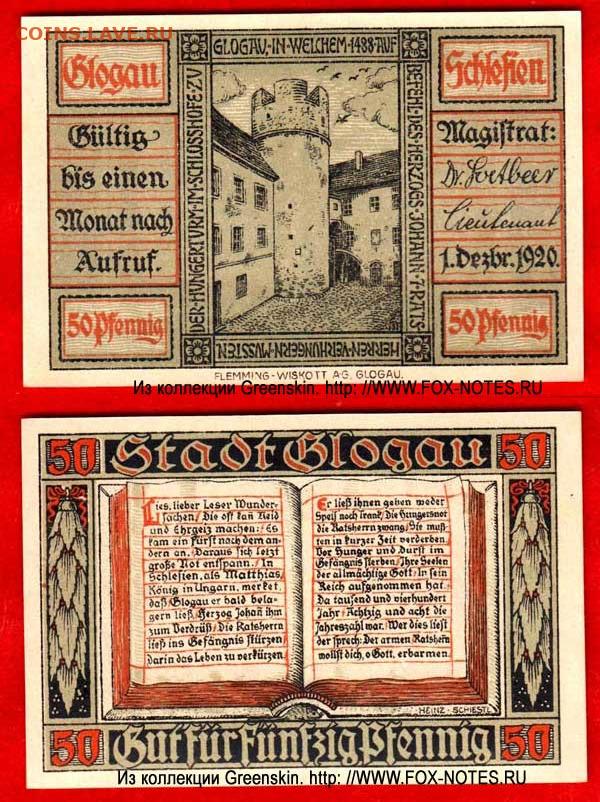 COINS.LAVE.RU
Glogau
Schlesien
Gültig
bis einen
Monat nach
Aufruf.
50 Pfennig
DER·HUNGERTURM·IM·SCHLOSSHOFE·ZU
GLOGAU·IN·WELCHEM·1488·AUF
BEFEHL·DES·HERZOGS·JOHANN·7·RATS
HERREN·VERHUNGERN·MUSSTEN
Magistrat:
Dr. Soetbeer
Lieutenant
1. Dezbr. 1920.
50 Pfennig
FLEMMING-WISKOTT A·G. GLOGAU.
Из коллекции Greenskin. http: //WWW.FOX-NOTES.RU
50 Stadt Glogau 50
Lies, lieber Leser Wunder-
sachen/ Die oft kan Neid
und Ehrgeiz machen: Es
kam ein Fürst nach dem an-
dern an. Daraus sich letzt
große Not entspann. In
Schlesien, als Matthias,
König in Ungarn, merket,
daß Glogau er hald bela-
gern ließ, Herzog Johañ ihm
zum Verdrüß/ Die Ratsherrn
ließ ins Gefängnis stürzen
darin das Leben zu verkürzen.
Er ließ ihnen geben weder
Speiß noch Trank/ Die Hungersnot
die Ratsherrn zwang. Sie muß-
ten in kurzer Zeit verderben.
Vor Hunger und Durst im
Gefängnis sterben/ Ihre Seelen
der allmächtige Gott/ In sein
Reich aufgenommen hat.
Da tausend und vierhundert
Jahr/ Achtzig und acht die
Jahreszahl war. Wer dies liest
der sprech: Der armen Ratsherrn
wollst dich, o Gott, erbarmen.
HEINZ·SCHIESTL
50 Gut für Fünfzig Pfennig 50
Из коллекции Greenskin. http: //WWW.FOX-NOTES.RU